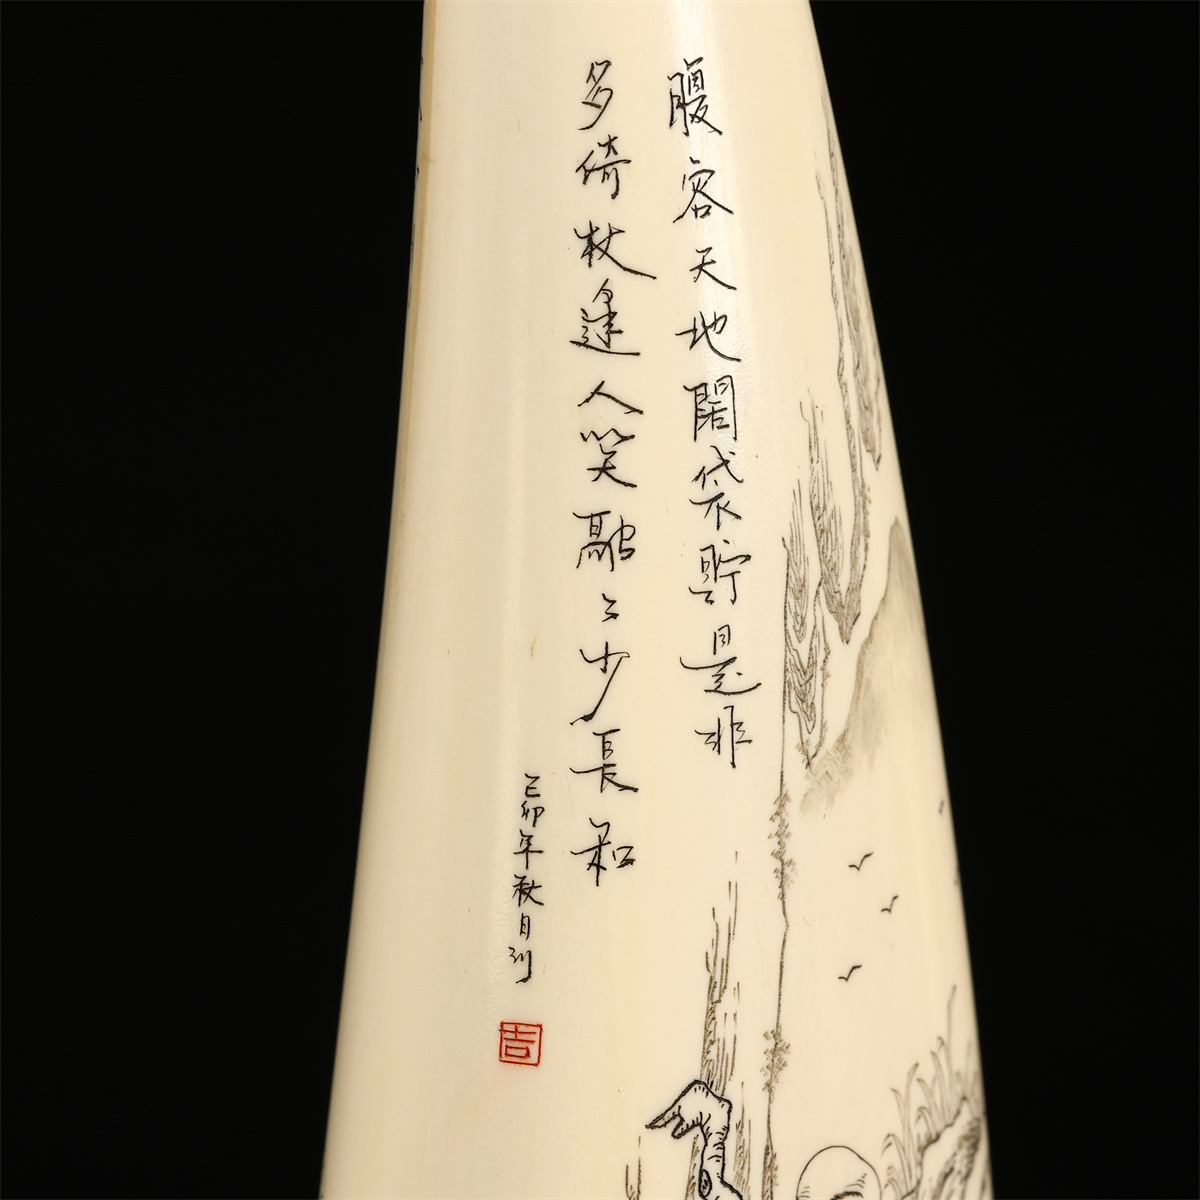 腹容天地闊袋貯是非
多倚杖逢人笑融〻少長和
己卯年秋日刻
吉